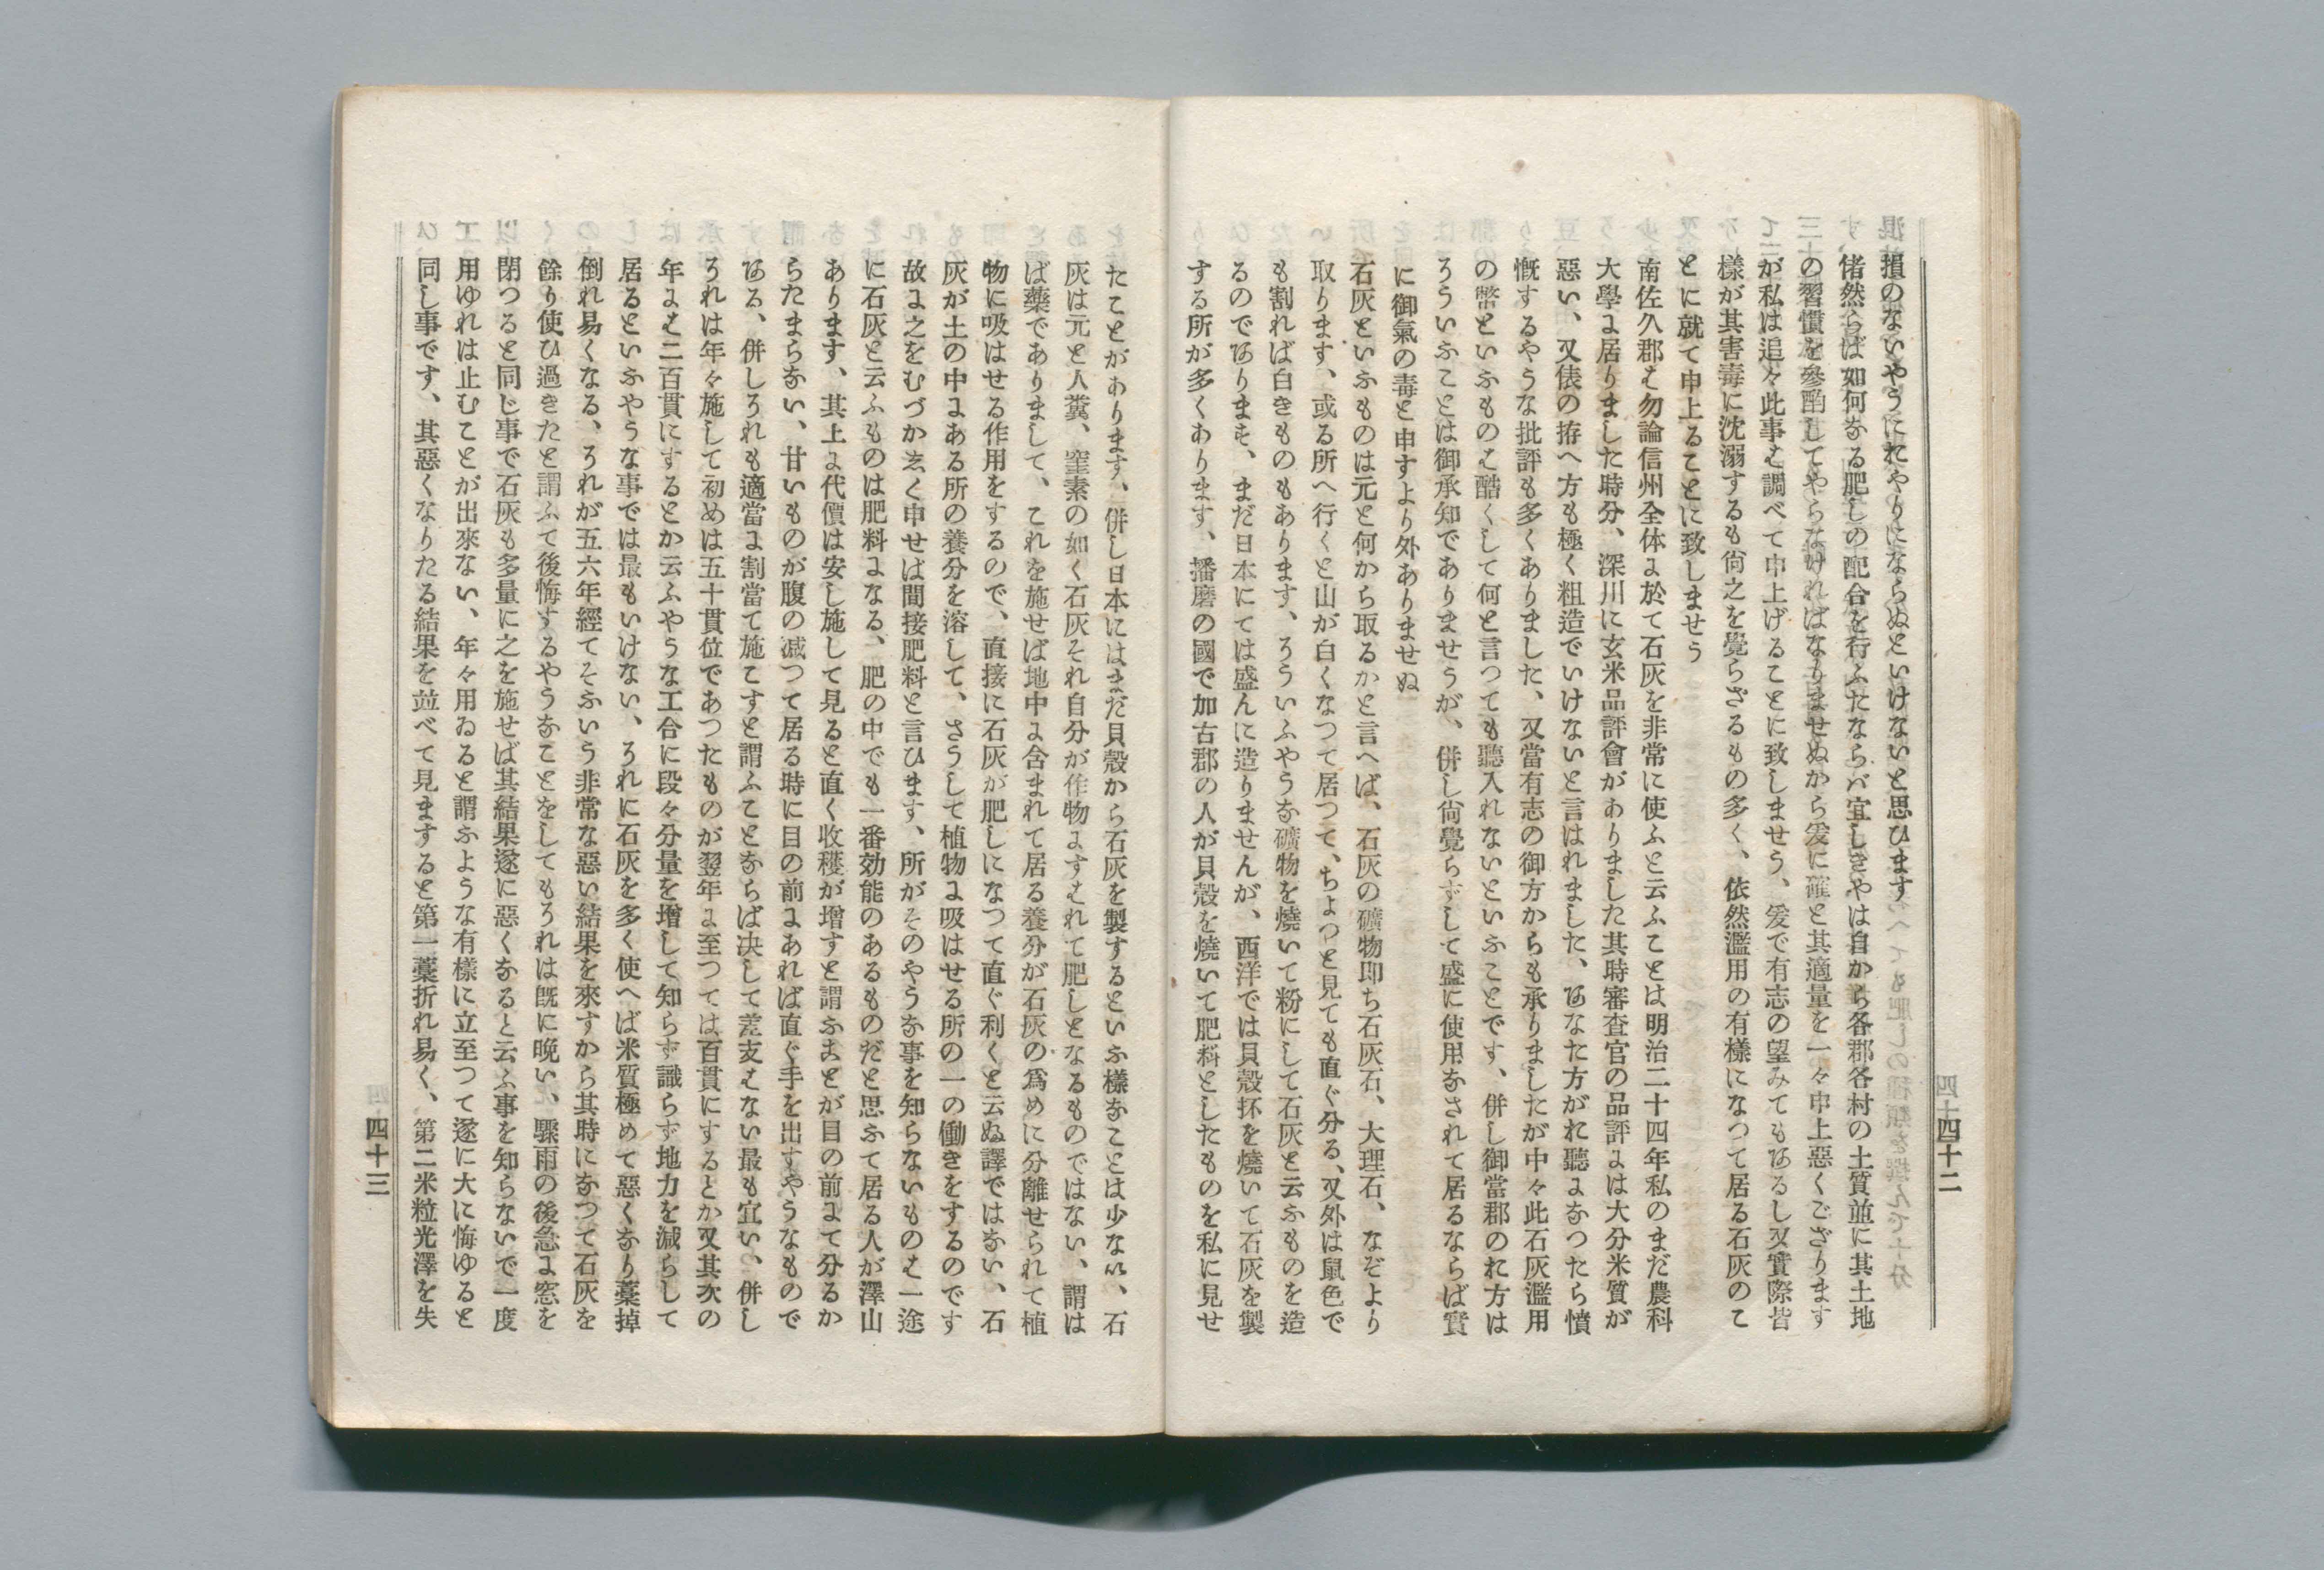 損のないやうにおやりにならぬといけないと思ひます
偖然らば如何なる肥しの配合を行ふたならバ宜しきやは自から各郡各村の土質並に其土地
の習慣を參酌してやらなければなりませぬから爰に確と其適量を一々申上惡くござります
が私は追々此事を調べて申上げることに致しませう、爰で有志の望みてもあるし又實際皆
樣が其害毒に沈溺するも尙之を覺らざるもの多く、依然濫用の有樣になつて居る石灰のこ
とに就て申上ることに致しませう
南佐久郡は勿論信州全体に於て石灰を非常に使ふと云ふことは明治二十四年私のまだ農科
大學に居りました時分、深川に玄米品評會がありました其時審査官の品評には大分米質が
惡い、又俵の拵へ方も極く粗造でいけないと言はれました、あなた方がお聽になつたら憤
慨するやうな批評も多くありました、又當有志の御方からも承りましたが中々此石灰濫用
の幣といふものは酷くして何と言つても聽入れないといふことです、併し御當郡のお方は
そういふことは御承知でありませうが、併し尙覺らずして盛に使用なされて居るならば實
に御氣の毒と申すより外ありませぬ
石灰といふものは元と何から取るかと言へば、石灰の礦物即ち石灰石、大理石、なぞより
取ります、或る所へ行くと山が白くなつて居つて、ちよつと見ても直ぐ分る、又外は鼠色で
も割れば白きものもあります、そういふやうな礦物を燒いて粉にして石灰と云ふものを造
るのであります、まだ日本にては盛んに造りませんが、西洋では貝殼抔を燒いて石灰を製
する所が多くあります、播磨の國で加古郡の人が貝殼を燒いて肥料としたものを私に見せ
四十二
たことがあります、併し日本にはまだ貝殼から石灰を製するといふ樣なことは少ない、石
灰は元と人糞、窒素の如く石灰それ自分が作物にすはれて肥しとなるものではない、謂は
ば藥でありまして、これを施せば地中に含まれて居る養分が石灰の爲めに分離せられて植
物に吸はせる作用をするので、直接に石灰が肥しになつて直ぐ利くと云ぬ譯ではない、石
灰が土の中にある所の養分を溶して、さうして植物に吸はせる所の一の働きをするのです
故に之をむづかしく申せば間接肥料と言ひます、所がそのやうな事を知らないものは一途
に石灰と云ふものは肥料になる、肥の中でも一番効能のあるものだと思ふて居る人が澤山
あります、其上に代價は安し施して見ると直く收穫が增すと謂ふことが目の前にて分るか
らたまらない、甘いものが腹の減つて居る時に目の前にあれば直ぐ手を出すやうなもので
ある、併しそれも適當に割當て施こすと謂ふことならば決して差支はない最も宜い、併し
それは年々施して初めは五十貫位であつたものが翌年に至つては百貫にするとか又其次の
年には二百貫にするとか云ふやうな工合に段々分量を增して知らず識らず地力を減らして
居るといふやうな事では最もいけない、それに石灰を多く使へば米質極めて惡くなり藁掉
倒れ易くなる、それが五六年經てそふいう非常な惡い結果を來すから其時になつて石灰を
餘り使ひ過きたと謂ふて後悔するやうなことをしてもそれは旣に晚い、驟雨の後急に窓を
閉つると同じ事で石灰も多量に之を施せば其結果遂に惡くなると云ふ事を知らないで一度
用ゆれは止むことが出來ない、年々用ゐると謂ふような有樣に立至つて遂に大に悔ゆると
同し事です、其惡くなりたる結果を並べて見ますると第一藁折れ易く、第二米粒光澤を失
四十三